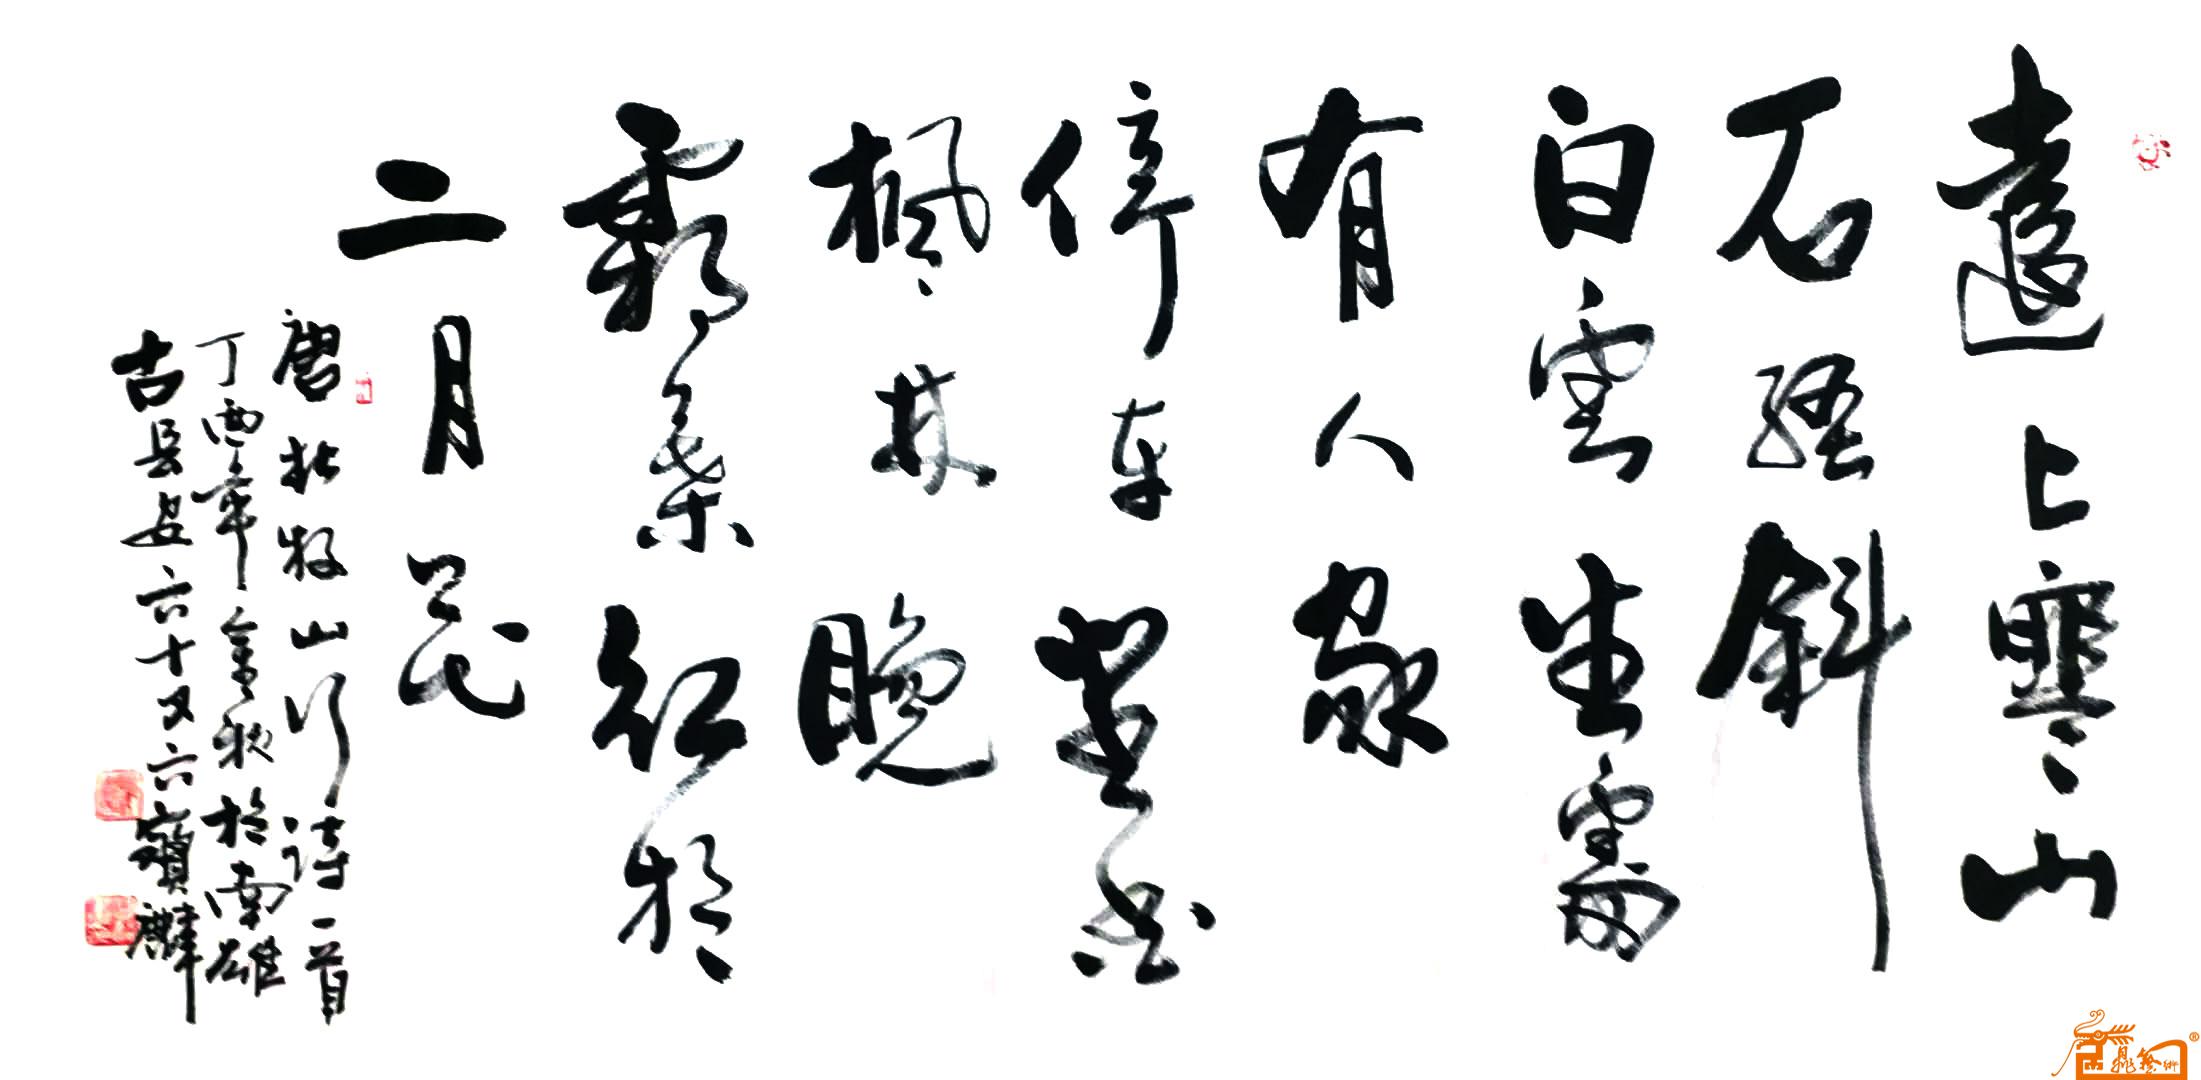 遠上寒山
石經斜
白雲生處
有人家
停車坐愛
楓林晚
霜葉紅於
二月花
唐杜牧山行詩一首
丁酉年金秋於南雄
古長安六十又六寶麟